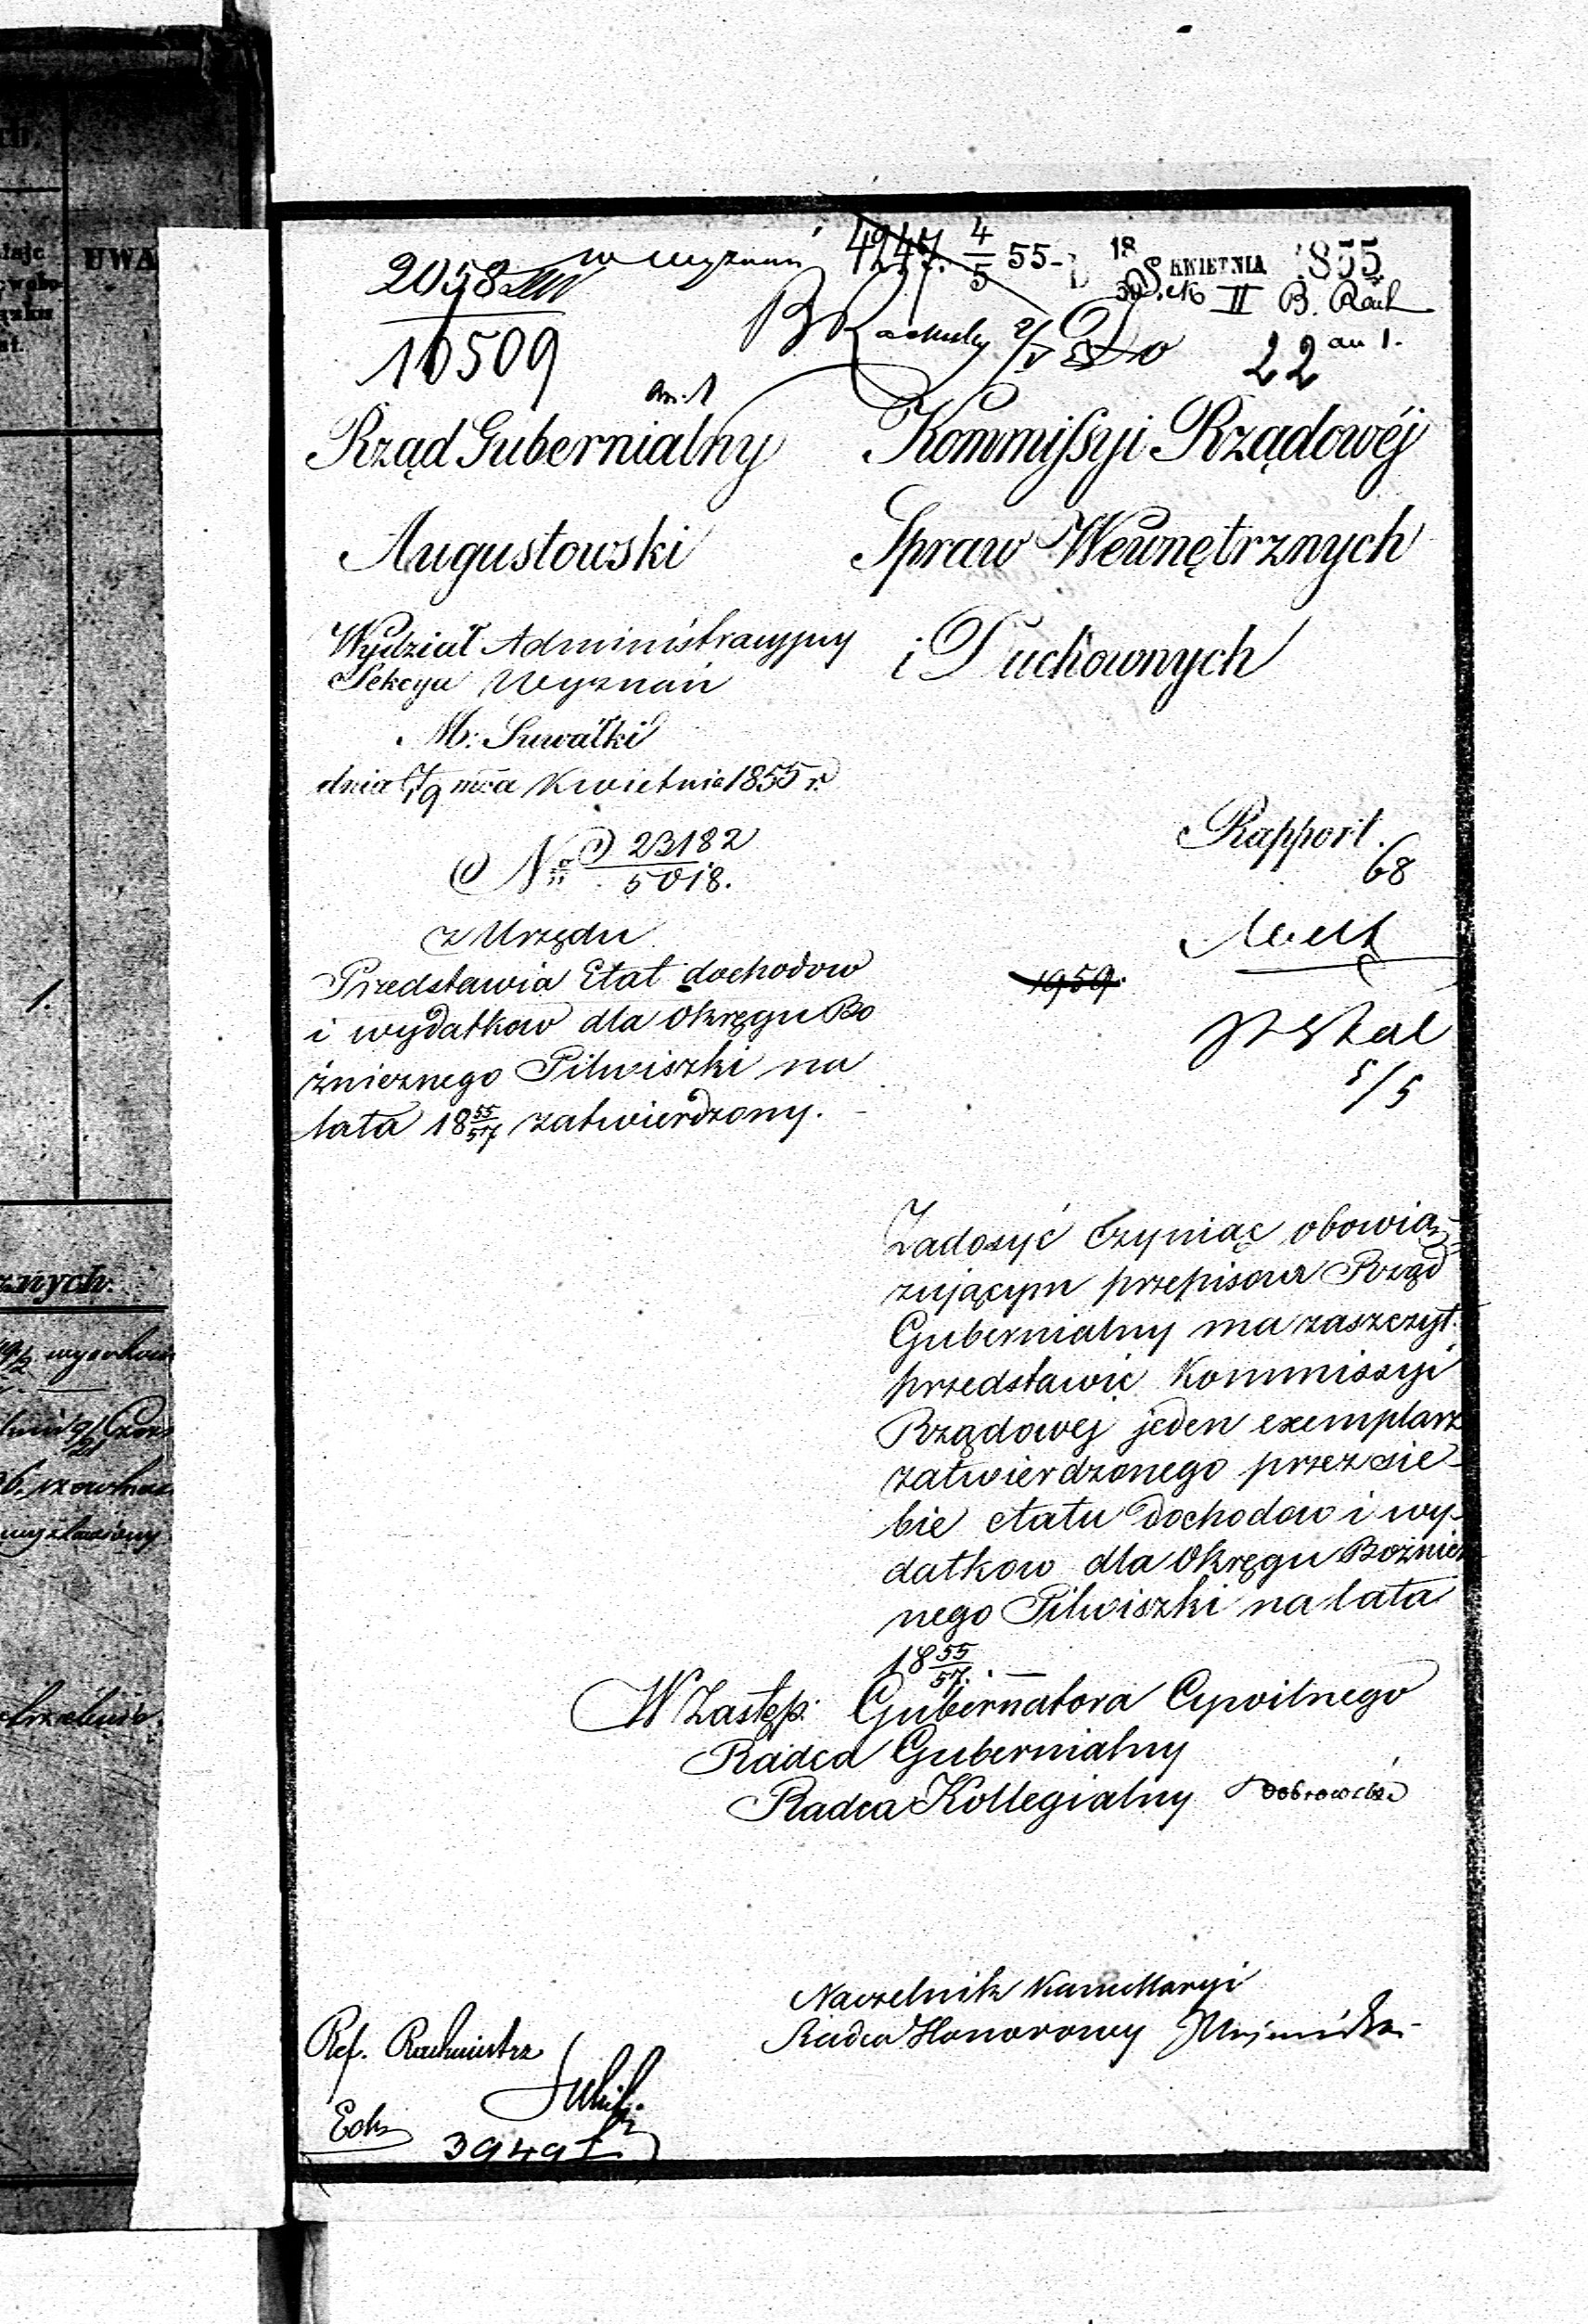 2058
10509
w wyznań
4947. 4/5 55-
18 KWIETNIA 1855
30 Sek II B. Rach
22 an 1.
an. 1
Rząd Gubernialny
Augustowski
Wydział Administracyjny
Sekcya Wyznań
M: Suwałki
dnia 7/19 mca Kwietnia 1855 r.
No 23182
5018.
z Urzędu
Przedstawia Etat dochodow
i wydatkow dla Okręgu Bo
żnicznego Pilwiszki na
lata 18 55/57 zatwierdzony.
Kommissyi Rządowéj
Spraw Wewnętrznych
i Duchownych
Rapport.
68
1959.
5/5
Zadosyć czyniąc obowią-
zującym przepisom Rząd
Gubernialny ma zaszczyt
przedstawić Kommissyi
Rządowej jeden exemplarz
zatwierdzonego przez sie-
bie etatu dochodow i wy-
datkow dla Okręgu Bożnicz
nego Pilwiszki na lata
18 55/57. —
W Zastęp: Gubernatora Cywilnego
Radca Gubernialny
Radca Kollegialny
Naczelnik Kancellaryi
Radca Honorowy
Ref. Rachmistrz
39491
UWA
1.
znych.